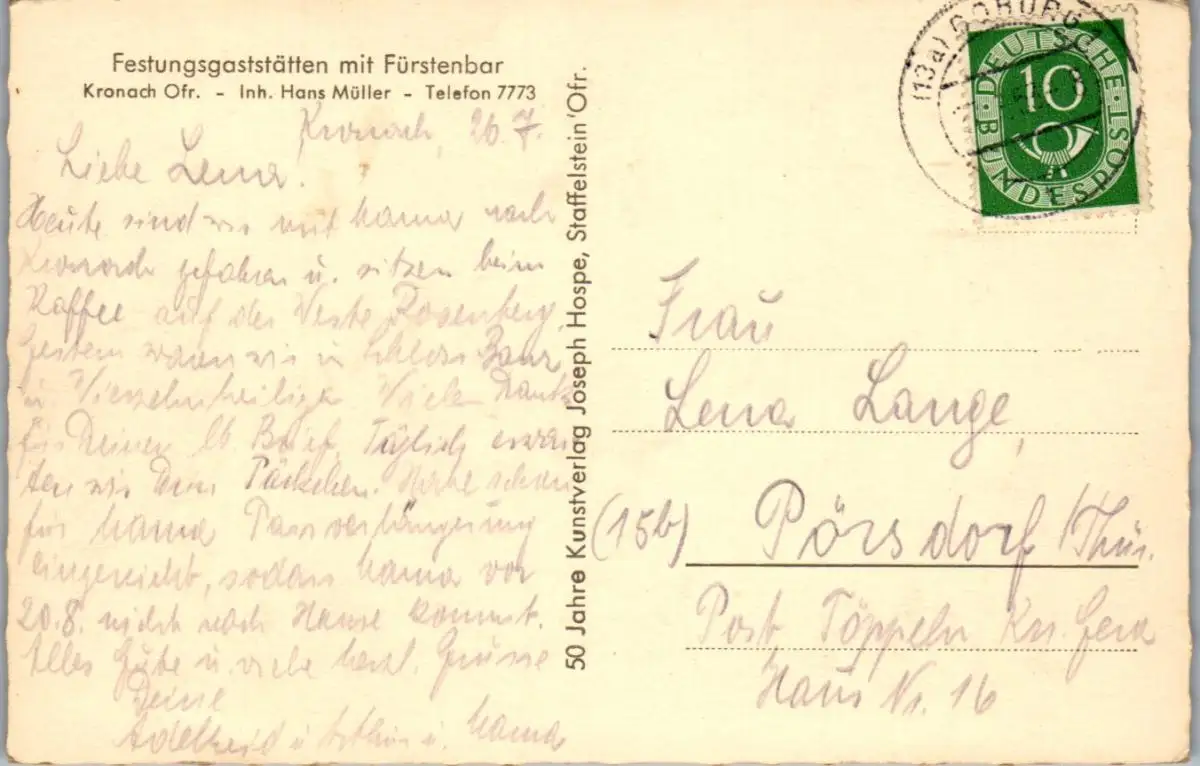 Festungsgaststätten mit Fürstenbar
Kronach Ofr. - Inh. Hans Müller - Telefon 7773
Kronach, 26.7.
Liebe Lena.
Heute sind wir mit Mama nach
Kronach gefahren u. sitzen beim
Kaffee auf der Veste Rosenberg,
Gestern waren wir in Schloss Banz
u. Vierzehnheiligen. Vielen Dank
für Deinen lb Brief. Täglich erwar
ten wir Dein Päckchen. Habe schon
für Mama Passverlängerung
eingereicht, sodass Mama vor
20.8. nicht nach Hause kommt.
Alles Gute u. viele herzl. Grüsse
Deine
Adelheid u. Arthur u. Mama
50 Jahre Kunstverlag Joseph Hospe, Staffelstein/Ofr.
(13a) COBURG
DEUTSCHE BUNDESPOST
10
Frau
Lena Lange,
(15b) Pörsdorf/Thür.
Post Töppeln Krs. Gera
Haus Nr. 16